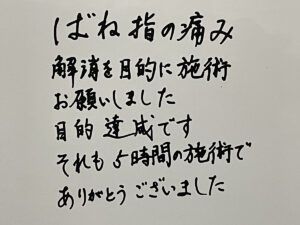 ばね指の痛み
解消を目的に施術
お願いしました
目的達成です
それも5時間の施術で
ありがとうございました